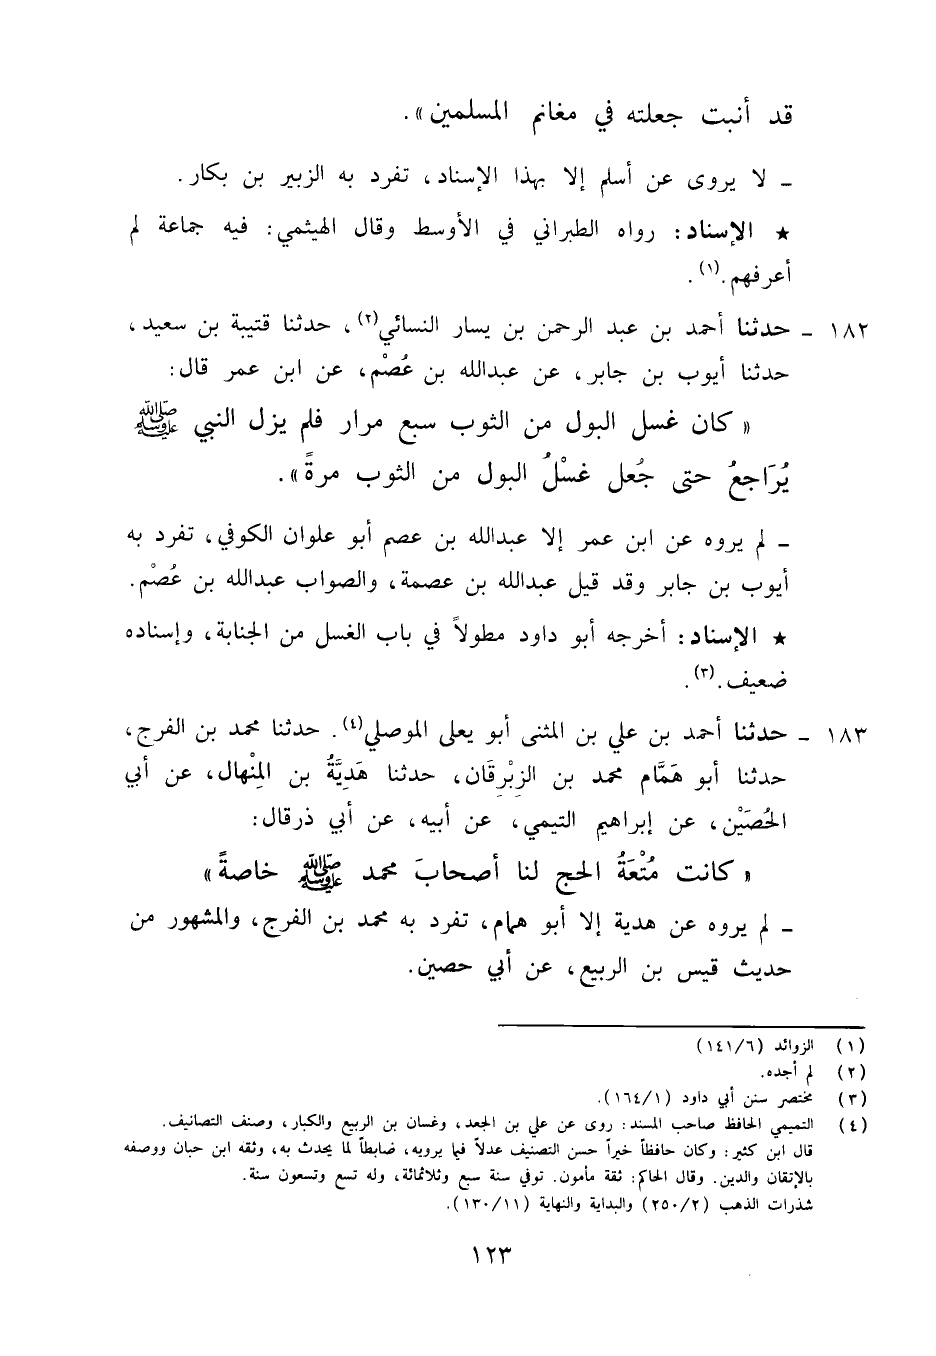 قد أنبت جعلته في مغانم المسلمين».
ـ لا يروى عن أسلم إلا بهذا الإسناد، تفرد به الزبير بن بكار.
★ الإسناد: رواه الطبراني في الأوسط وقال الهيثمي: فيه جماعة لم
أعرفهم.(١).
١٨٢ ـ حدثنا أحمد بن عبد الرحمن بن يسار النسائي(٢)، حدثنا قتيبة بن سعيد،
حدثنا أيوب بن جابر، عن عبدالله بن عُصْم، عن ابن عمر قال:
«كان غسل البول من الثوب سبع مرار فلم يزل النبي ﷺ
يُرَاجعُ حتى جُعل غسْلُ البول من الثوب مرةً».
ـ لم يروه عن ابن عمر إلا عبدالله بن عصم أبو علوان الكوفي، تفرد به
أيوب بن جابر وقد قيل عبدالله بن عصمة، والصواب عبدالله بن عُصْم.
★ الإسناد: أخرجه أبو داود مطولاً في باب الغسل من الجنابة، وإسناده
ضعيف.(٣).
١٨٣ ـ حدثنا أحمد بن علي بن المثنى أبو يعلى الموصلي(٤). حدثنا محمد بن الفرج،
حدثنا أبو هَمَّام محمد بن الزِبْرِقَان، حدثنا هَدِيَّةُ بن المِنْهال، عن أبي
الحُصَيْن، عن إبراهيم التيمي، عن أبيه، عن أبي ذرقال:
«كانت مُتْعَةُ الحج لنا أصحابَ محمد ﷺ خاصةً»
ـ لم يروه عن هدية إلا أبو همام، تفرد به محمد بن الفرج، والمشهور من
حديث قيس بن الربيع، عن أبي حصين.
(١) الزوائد (١٤١/٦)
(٢) لم أجده.
(٣) مختصر سنن أبي داود (١٦٤/١).
(٤) التميمي الحافظ صاحب المسند: روى عن علي بن الجعد، وغسان بن الربيع والكبار، وصنف التصانيف.
قال ابن كثير: وكان حافظاً خيراً حسن التصنيف عدلاً فيما يرويه، ضابطاً لما يحدث به، وثقه ابن حبان ووصفه
بالإتقان والدين. وقال الحاكم: ثقة مأمون. توفي سنة سبع وثلاثمائة، وله تسع وتسعون سنة.
شذرات الذهب (٢٥٠/٢) والبداية والنهاية (١٣٠/١١).
١٢٣